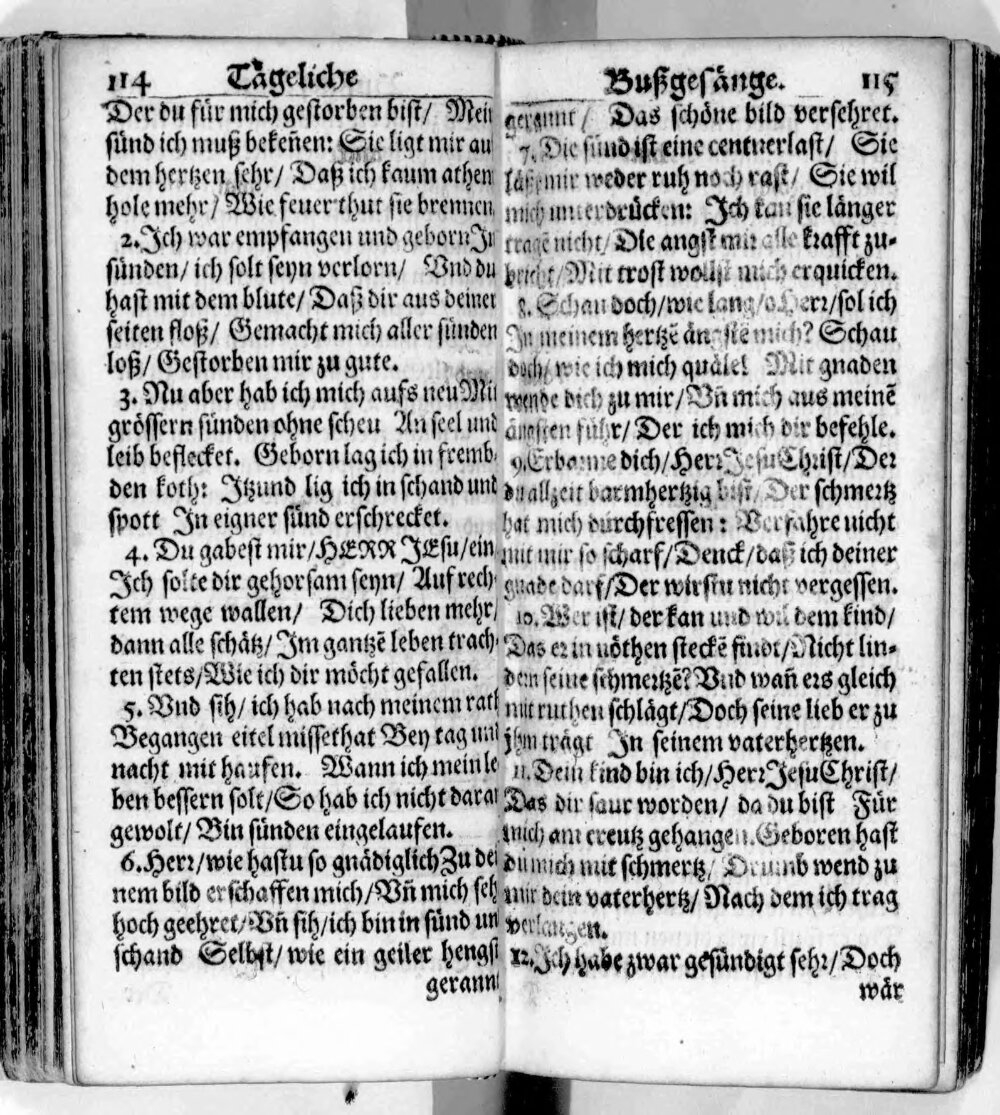 114 Tägeliche
Der du für mich gestorben bist/ Mein
sünd ich muß bekeñen: Sie ligt mir au
dem hertzen sehr/ Daß ich kaum athen
hole mehr/ Wie feuer thut sie brennen
2. Ich war empfangen und geborn In
sünden/ ich solt seyn verlorn/ Vnd du
hast mit dem blute/ Daß dir aus deiner
seiten floß/ Gemacht mich aller sünden
loß/ Gestorben mir zu gute.
3. Nu aber hab ich mich aufs neu Mit
grössern sünden ohne scheu An seel und
leib beflecket. Geborn lag ich in fremb-
den koth: Itzund lig ich in schand und
spott In eigner sünd erschrecket.
4. Du gabest mir/ HERR JEsu/ ein
Ich solte dir gehorsam seyn/ Auf rech-
tem wege wallen/ Dich lieben mehr/
dann alle schätz/ Im gantzē leben trach-
ten stets/ Wie ich dir möcht gefallen.
5. Vnd sih/ ich hab nach meinem rath
Begangen eitel missethat Bey tag und
nacht mit haufen. Wann ich mein le
ben bessern solt/ So hab ich nicht daran
gewolt/ Bin sünden eingelaufen.
6. Herr/ wie hastu so gnädiglich Zu dei
nem bild erschaffen mich/ Vñ mich seh
hoch geehret/ Vñ sih/ ich bin in sünd un
schand Selbst/ wie ein geiler hengst
gerannt
Bußgesänge. 115
gerannt/ Das schöne bild versehret.
7. Die sünd ist eine centnerlast/ Sie
läßt mir weder ruh noch rast/ Sie wil
mich unterdrücken: Ich kan sie länger
tragē nicht/ Die angst mir alle krafft zu-
bricht/ Mit trost wollst mich erquicken.
8. Schau doch/ wie lang/ o Herr/ sol ich
In meinem hertzē ängstē mich? Schau
doch/ wie ich mich quäle! Mit gnaden
wende dich zu mir/ Vñ mich aus meinē
ängsten führ/ Der ich mich dir befehle.
9. Erbarme dich/ Herr Jesu Christ/ Der
du allzeit barmhertzig bist/ Der schmertz
hat mich durchfressen: Verfahre nicht
mit mir so scharf/ Denck/ daß ich deiner
gnade darf/ Der wirstu nicht vergessen.
10. Wer ist/ der kan und wil dem kind/
Das er in nöthen steckē findt/ Nicht lin-
dern seine schmertzē? Vnd wañ ers gleich
mit ruthen schlägt/ Doch seine lieb er zu
jhm trägt In seinem vaterhertzen.
11. Dein kind bin ich/ Herr Jesu Christ/
Das dir saur worden/ da du bist Für
mich am creutz gehangen. Geboren hast
du mich mit schmertz/ Drumb wend zu
mir dein vaterhertz/ Nach dem ich trag
verlangen.
12. Ich habe zwar gesündigt sehr/ Doch
wär